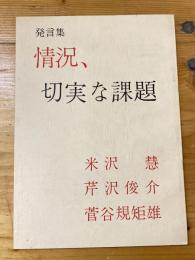 発言集
情況、
切実な課題
米沢 慧
芹沢俊介
菅谷規矩雄